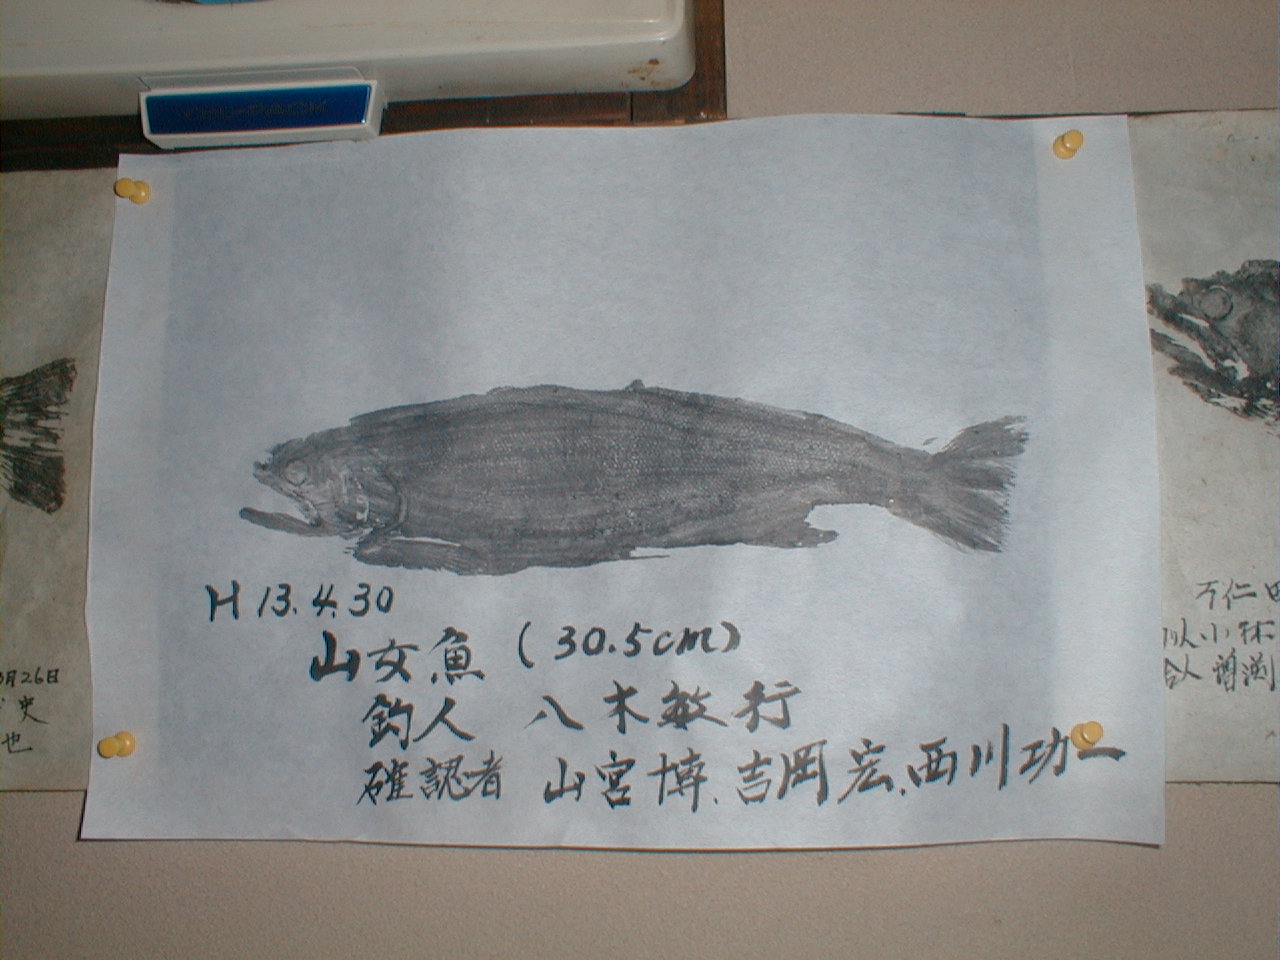 H 13.4.30
山女魚 (30.5cm)
釣人 八木敏行
確認者 山宮博、吉岡宏、西川功一
月26日
史
也